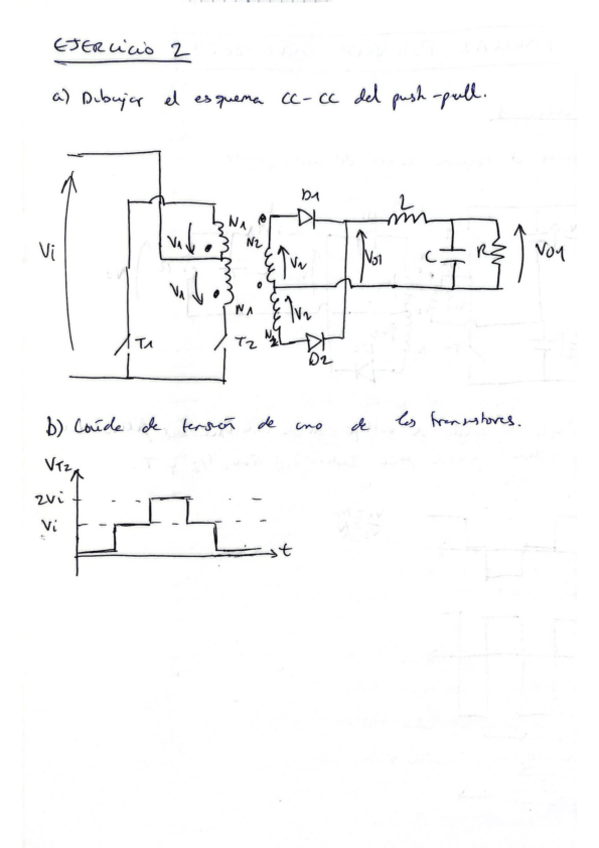 EJERCICIO 2
a) Dibujar el esquema CC-CC del push-pull.
D1
L
N1
V1
N2
V2
Vi
V01
C
R
V01
V1
N1
V2
T1
T2
N2
D2
b) Caída de tensión de uno de los transistores.
VT2
2Vi
Vi
t